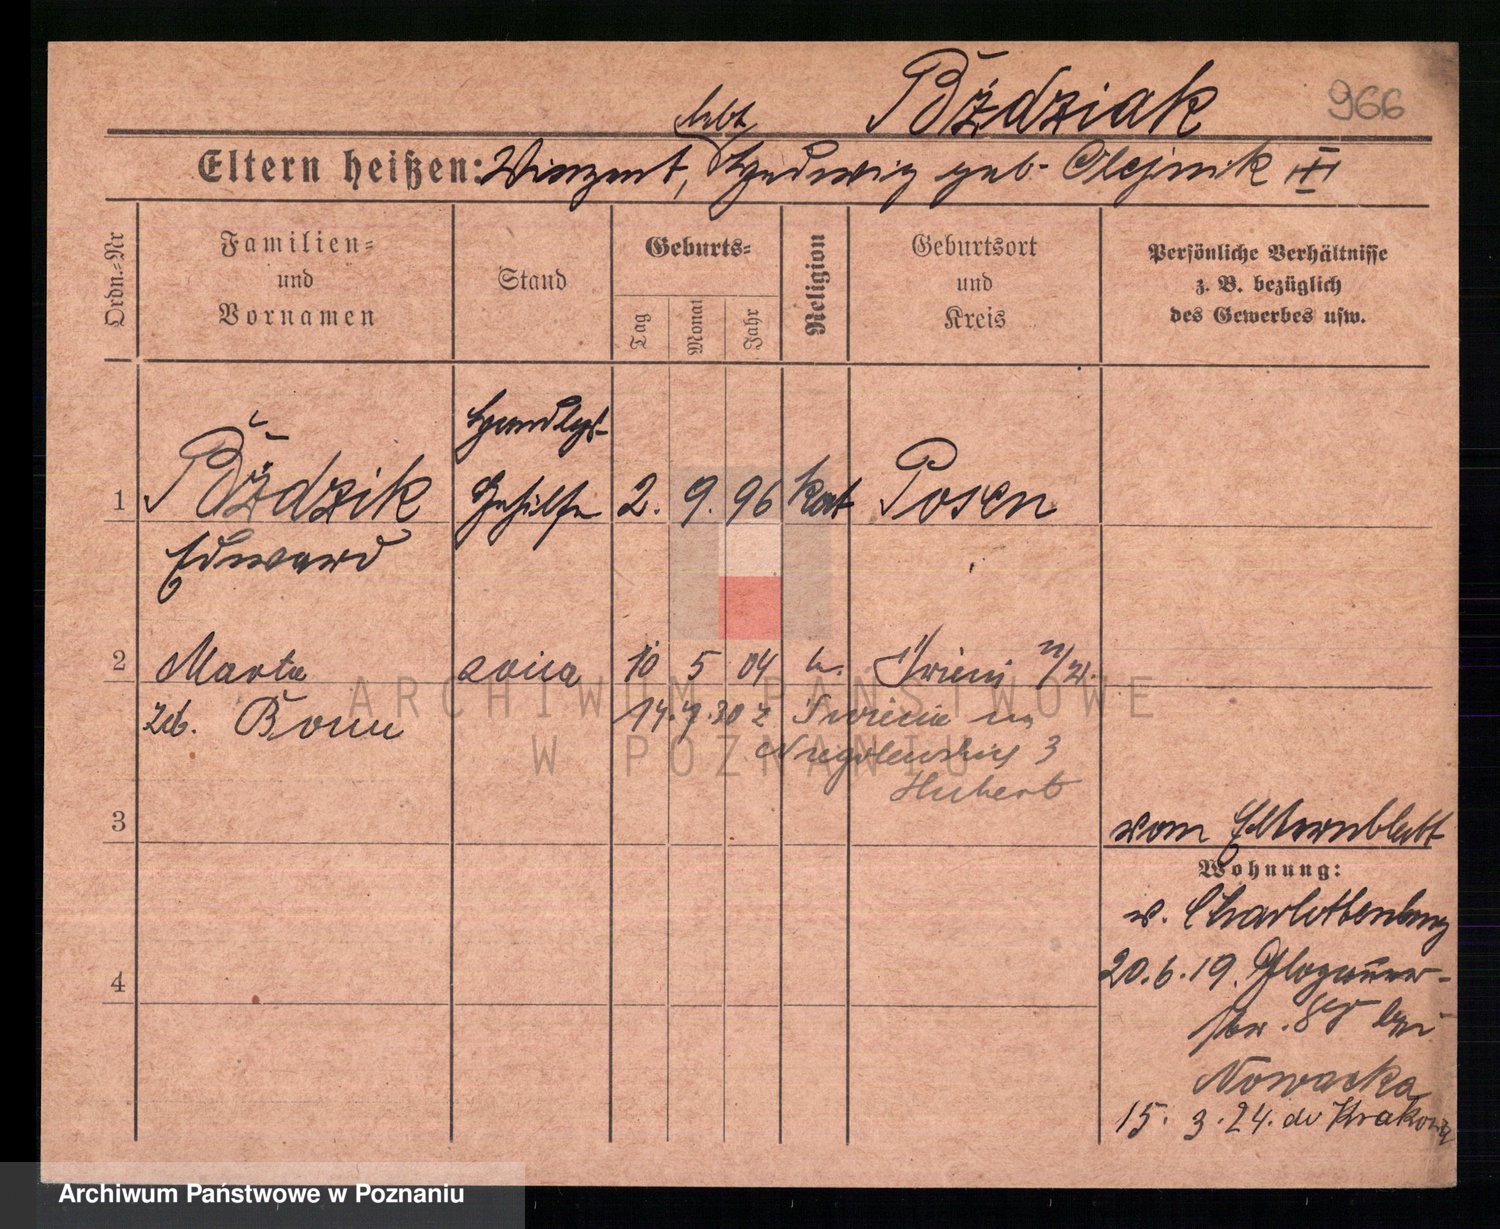 966
Bździak
lebt
Eltern heißen: Vinzent, Hedwig geb. Olejnik III
Ordn.-Nr
Familien-
und
Vornamen
Stand
Geburts-
Tag
Monat
Jahr
Religion
Geburtsort
und
Kreis
Persönliche Verhältnisse
z. B. bezüglich
des Gewerbes usw.
Handlgs-
1 Bździk Gehilfe 2. 9. 96 kat Posen
Edward
2 Marta żona 10 5 04 k.
zd. 14.7.30 z
3
Hubert
3
vom Elternblatt
Wohnung:
v. Charlottenburg
20.6.19. Glogauer-
str. bei
4
Nowacka
15. 3. 24. do Krakowa
ARCHIWUM PAŃSTWOWE
W POZNANIU
Archiwum Państwowe w Poznaniu